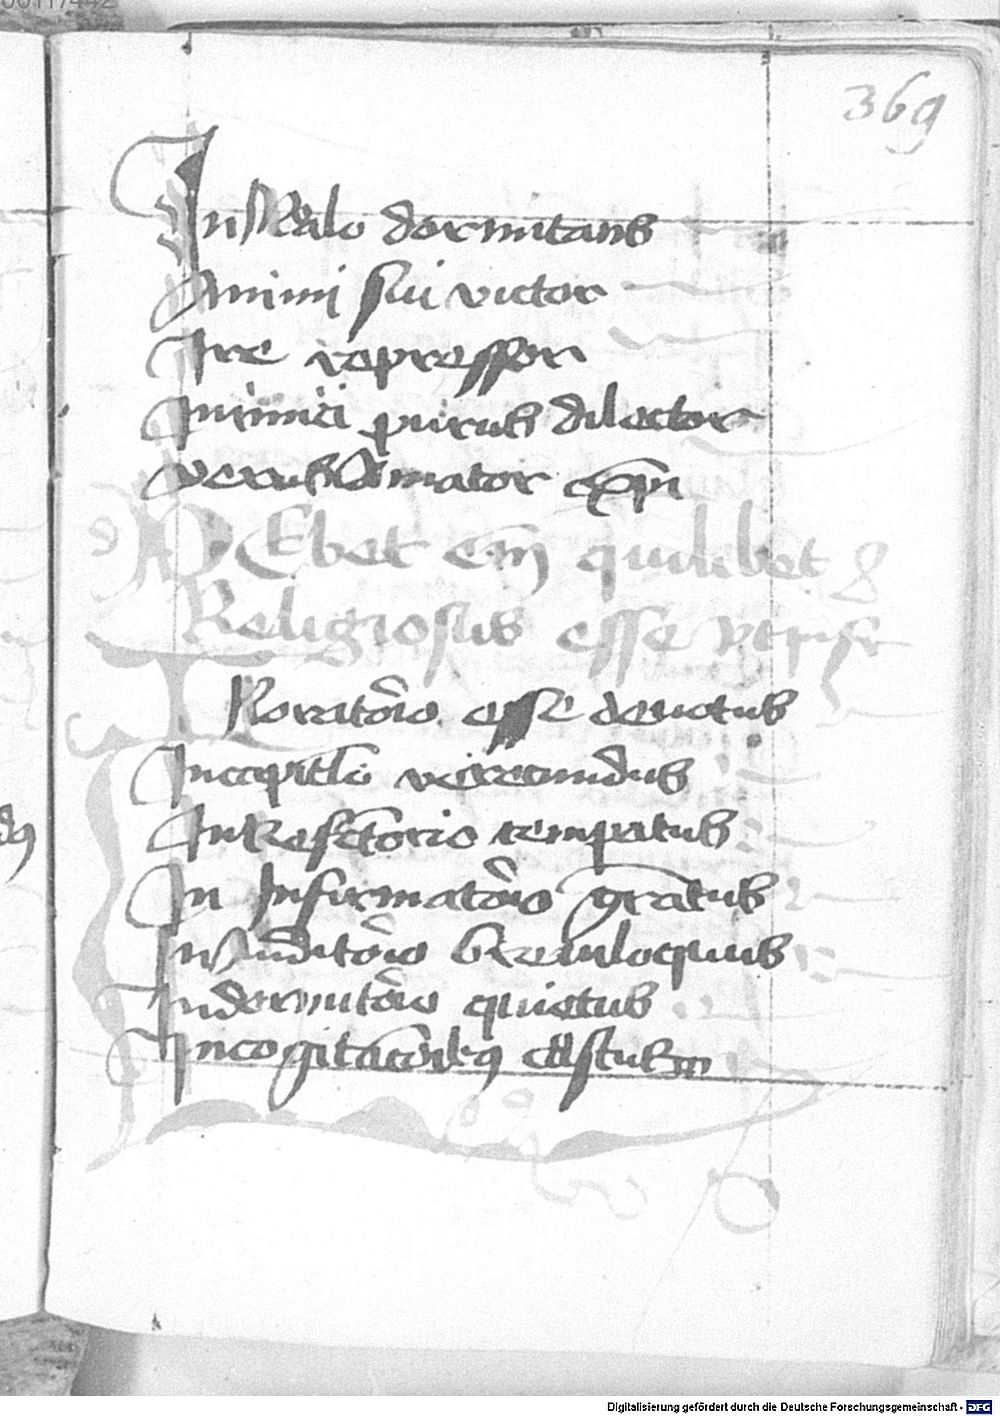 369
dormitans
Animi sui victor
Ire repressor
Inimici purus dilector
verus Amator
DEbet eni quilibet
Religiosus esse
In oratorio esse devotus
In capitlo verecundus
In Refectorio tempatus
In Infirmatorio gratus
In Auditorio breviloquus
In dormitorio quietus
In cogitacoibus castus
Digitalisierung gefördert durch die Deutsche Forschungsgemeinschaft - DFG